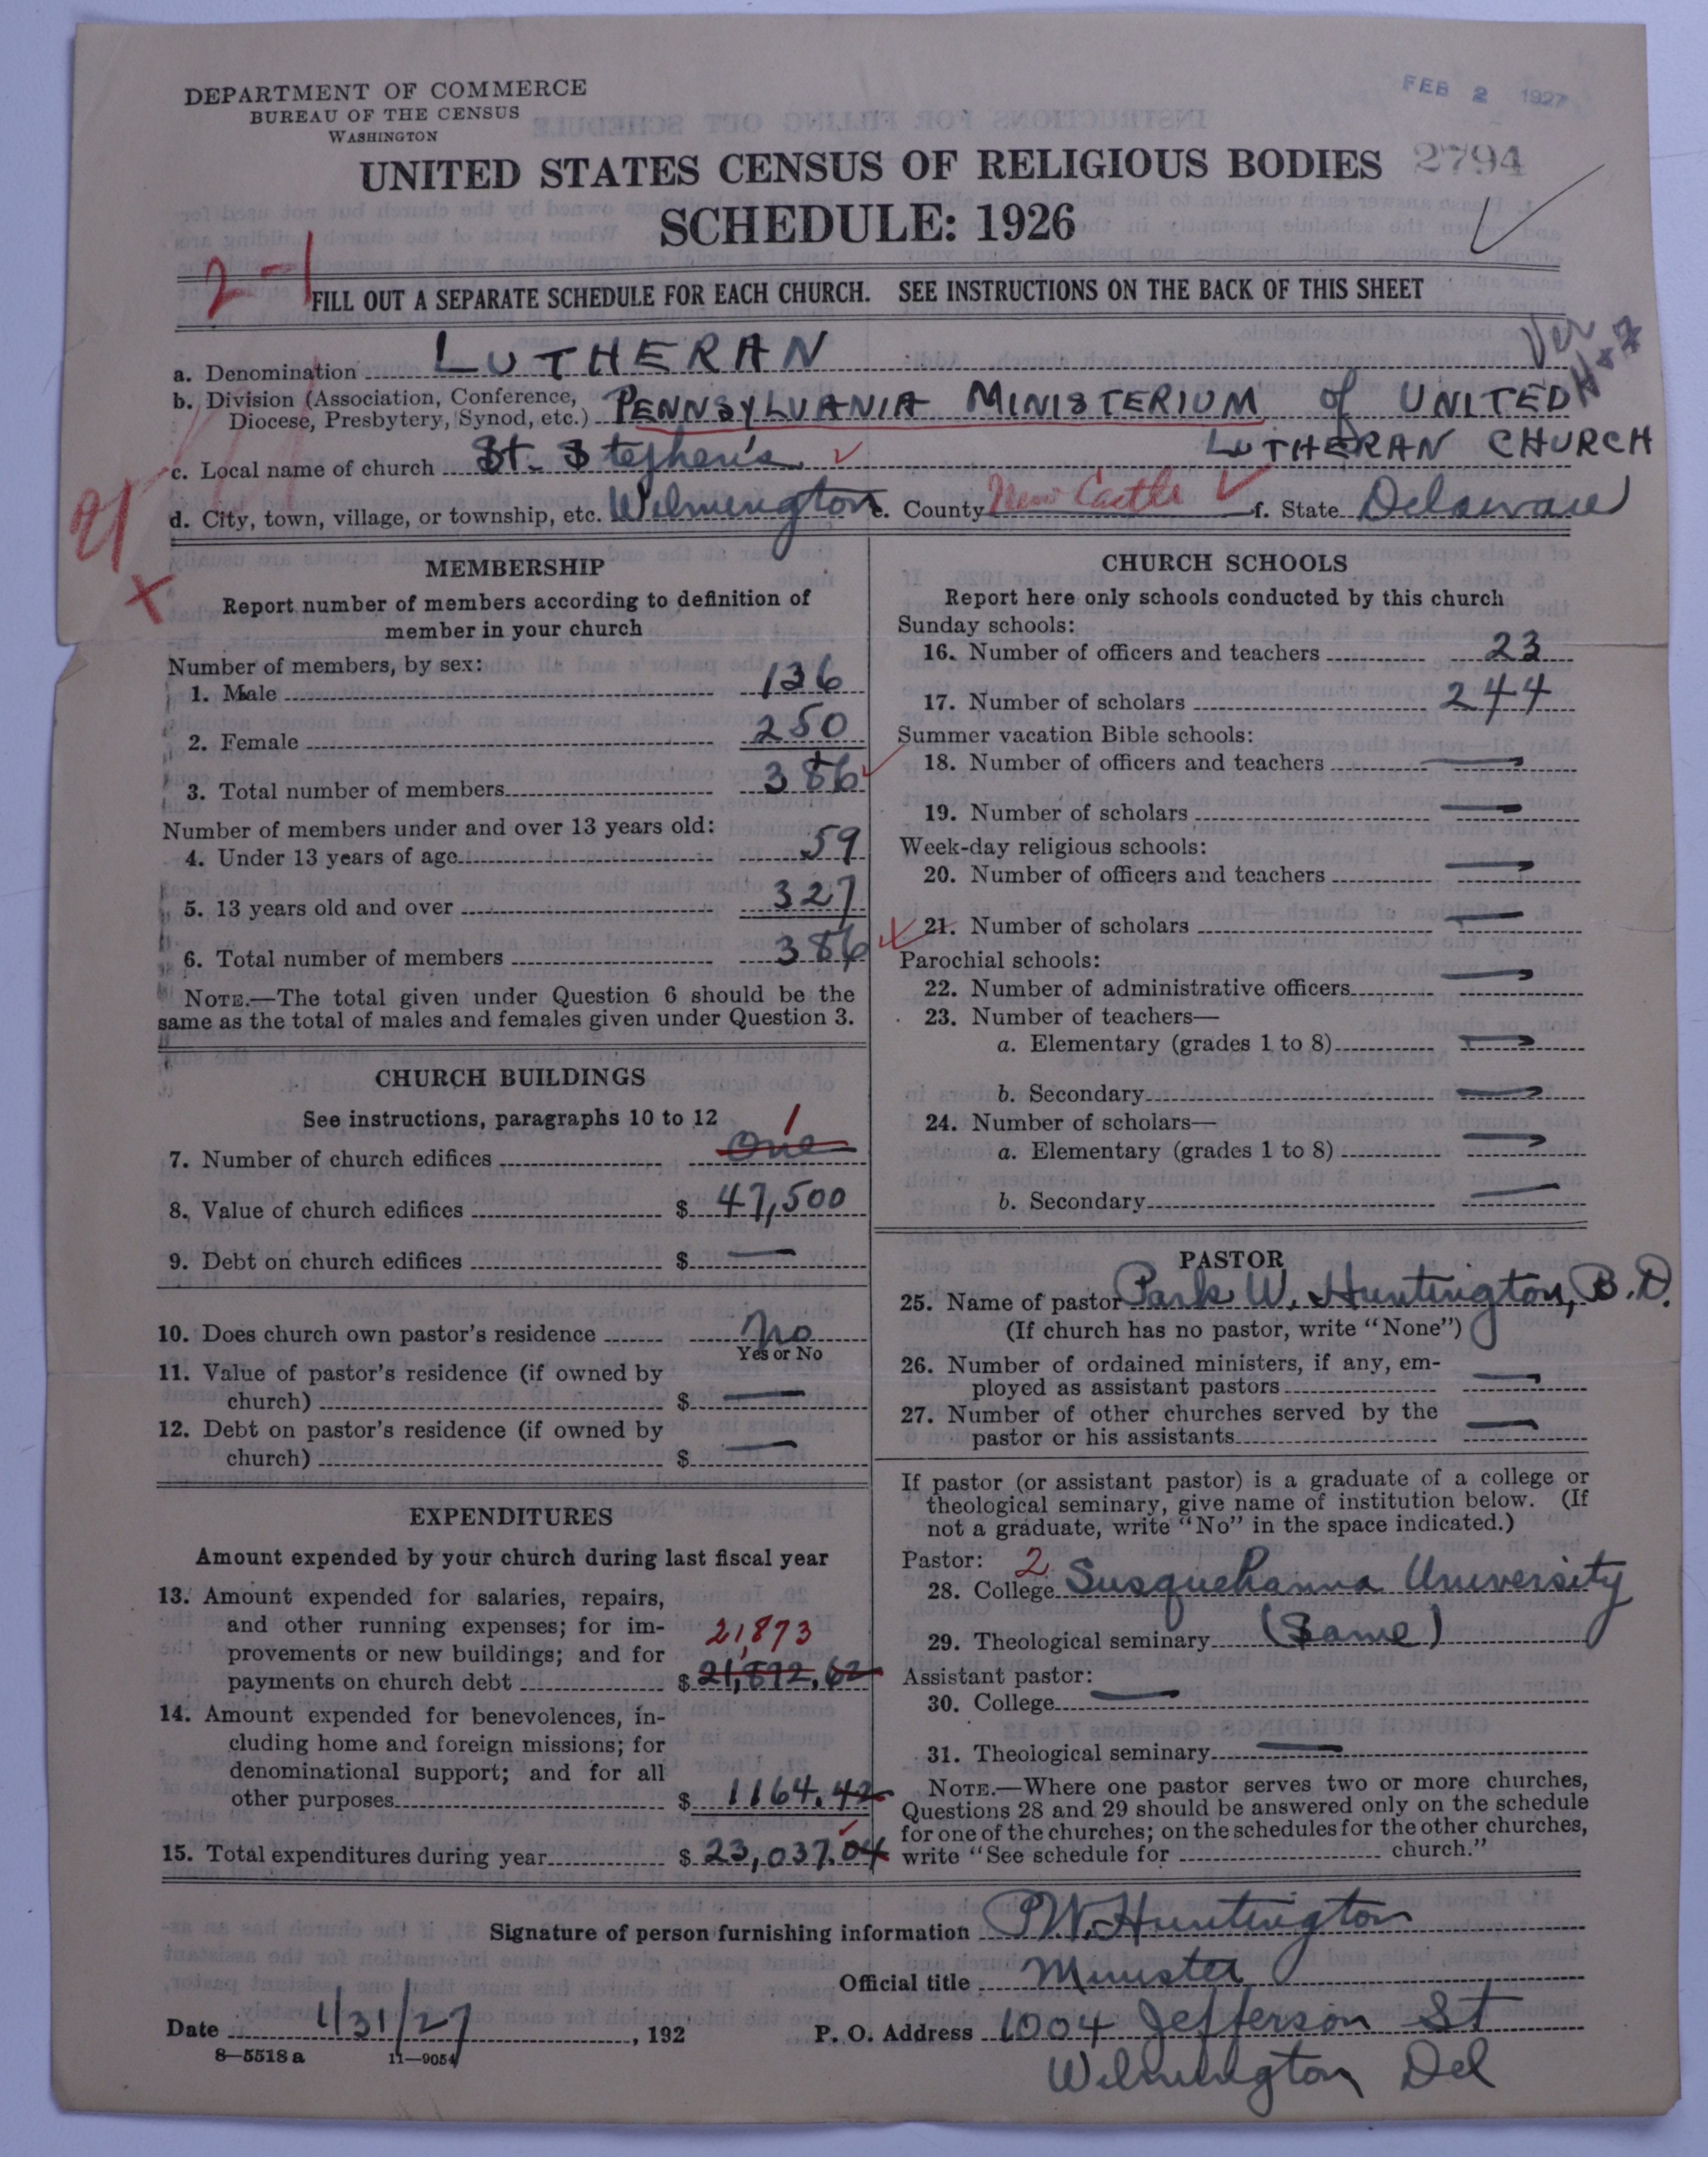 DEPARTMENT OF COMMERCE
BUREAU OF THE CENSUS
WASHINGTON
FEB 2 1927
UNITED STATES CENSUS OF RELIGIOUS BODIES
2794
SCHEDULE: 1926
2-1
FILL OUT A SEPARATE SCHEDULE FOR EACH CHURCH. SEE INSTRUCTIONS ON THE BACK OF THIS SHEET
a. Denomination LUTHERAN
b. Division (Association, Conference, Diocese, Presbytery, Synod, etc.) PENNSYLVANIA MINISTERIUM of UNITED
LUTHERAN CHURCH
c. Local name of church St. Stephen's
d. City, town, village, or township, etc. Wilmington e. County New Castle f. State Delaware
MEMBERSHIP
Report number of members according to definition of
member in your church
Number of members, by sex:
1. Male 136
2. Female 250
3. Total number of members 386
Number of members under and over 13 years old:
4. Under 13 years of age 59
5. 13 years old and over 327
6. Total number of members 386
NOTE.—The total given under Question 6 should be the
same as the total of males and females given under Question 3.
CHURCH BUILDINGS
See instructions, paragraphs 10 to 12
1
7. Number of church edifices One
8. Value of church edifices $ 47,500
9. Debt on church edifices $ —
10. Does church own pastor's residence No
Yes or No
11. Value of pastor's residence (if owned by
church) $ —
12. Debt on pastor's residence (if owned by
church) $ —
EXPENDITURES
Amount expended by your church during last fiscal year
13. Amount expended for salaries, repairs,
and other running expenses; for im-
provements or new buildings; and for
21,873
payments on church debt $ 21,872.62
14. Amount expended for benevolences, in-
cluding home and foreign missions; for
denominational support; and for all
other purposes $ 1164.42
15. Total expenditures during year $ 23,037.04
CHURCH SCHOOLS
Report here only schools conducted by this church
Sunday schools:
16. Number of officers and teachers 23
17. Number of scholars 244
Summer vacation Bible schools:
18. Number of officers and teachers —
19. Number of scholars —
Week-day religious schools:
20. Number of officers and teachers —
21. Number of scholars —
Parochial schools:
22. Number of administrative officers —
23. Number of teachers—
a. Elementary (grades 1 to 8) —
b. Secondary —
24. Number of scholars—
a. Elementary (grades 1 to 8) —
b. Secondary —
PASTOR
25. Name of pastor Park W. Huntington, B.D.
(If church has no pastor, write "None")
26. Number of ordained ministers, if any, em-
ployed as assistant pastors —
27. Number of other churches served by the
pastor or his assistants —
If pastor (or assistant pastor) is a graduate of a college or
theological seminary, give name of institution below. (If
not a graduate, write "No" in the space indicated.)
Pastor: 2
28. College Susquehanna University
29. Theological seminary (Same)
Assistant pastor:
30. College —
31. Theological seminary —
NOTE.—Where one pastor serves two or more churches,
Questions 28 and 29 should be answered only on the schedule
for one of the churches; on the schedules for the other churches,
write "See schedule for church."
Signature of person furnishing information P.W. Huntington
Official title Minister
Date 1/31/27, 192
P. O. Address 1004 Jefferson St
Wilmington Del
8—5518 a 11—9054